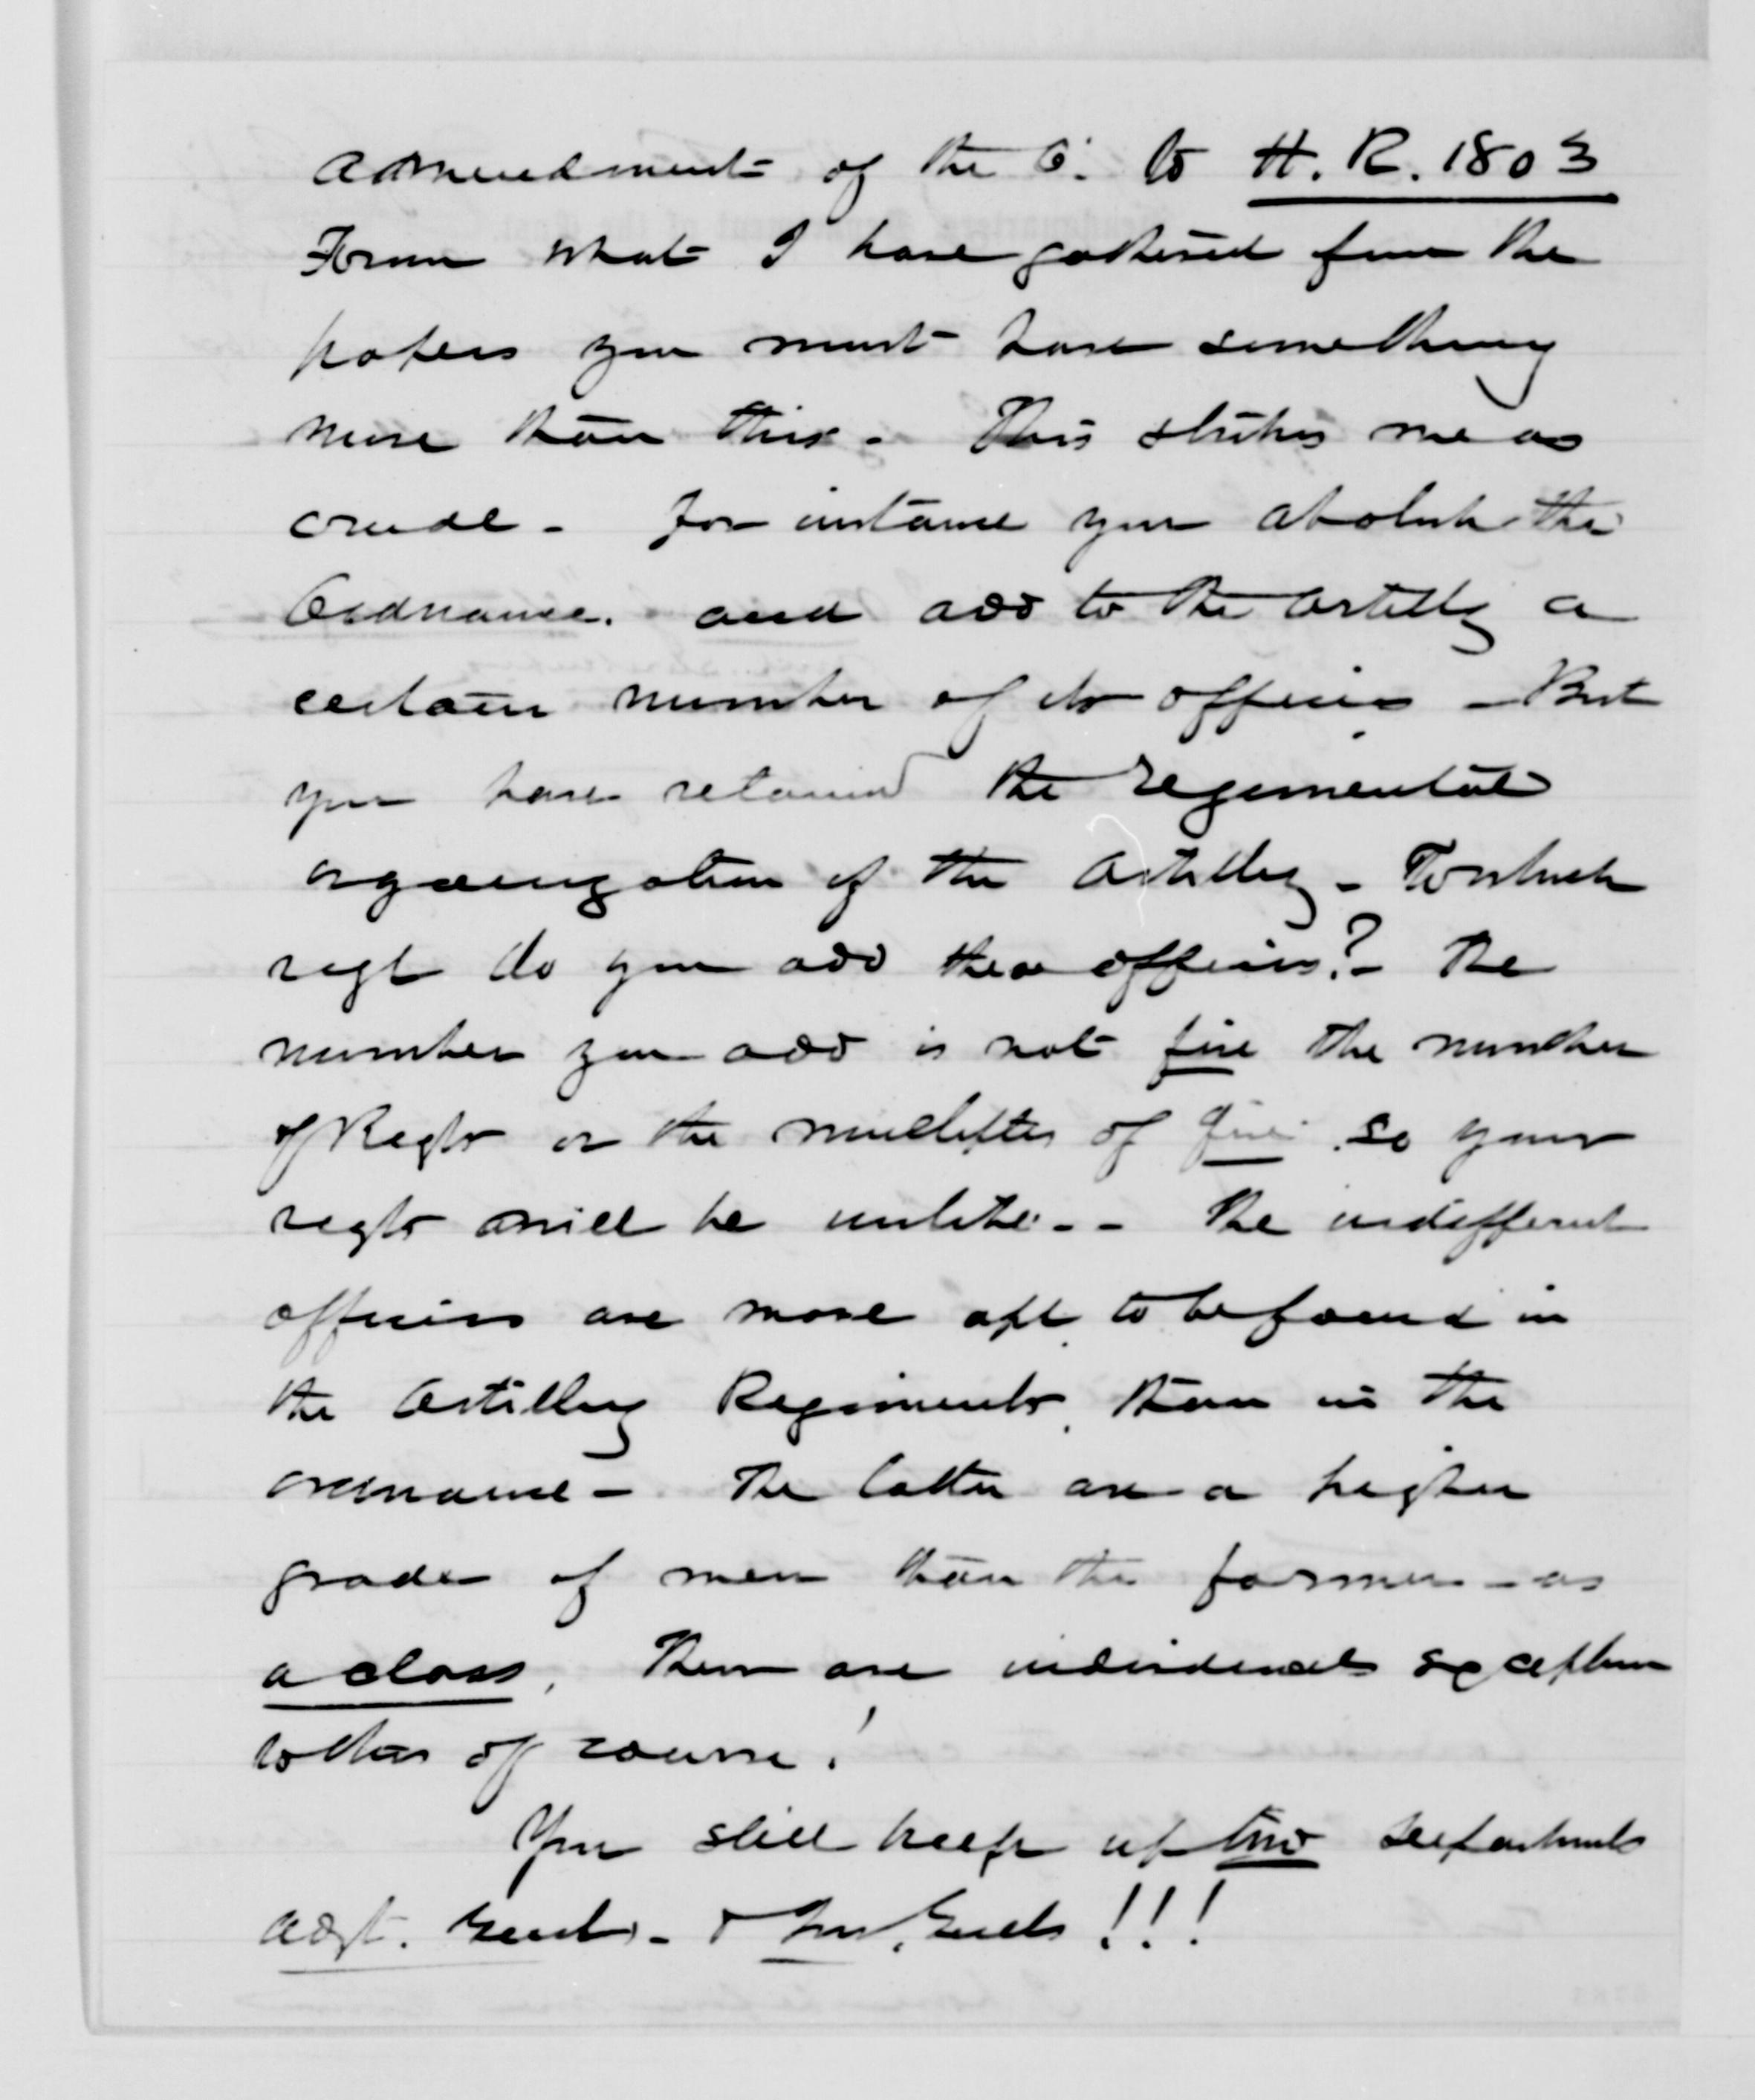 Admendment of the C. to H. R. 1803
From what I have gathered from the
papers you must have something
more than this - This strikes me as
crude - For instance you abolish the
Ordnance. and add to the Artilly a
certain number of its officers - But
you have retained the regimental
organization of the Artillery - To which
regt do you add these officers? - The
number you add is not five the number
of Regts or the multiples of five so your
regts will be unlike - - The indifferent
officers are more apt to be found in
the Artillery Regiments than in the
ordnance - The latter are a higher
grade of men than the former - as
a class. There are individual exceptions
to this of course!
You still keep up two departments
Adjt. Genls. - & Ins. Genls !!!